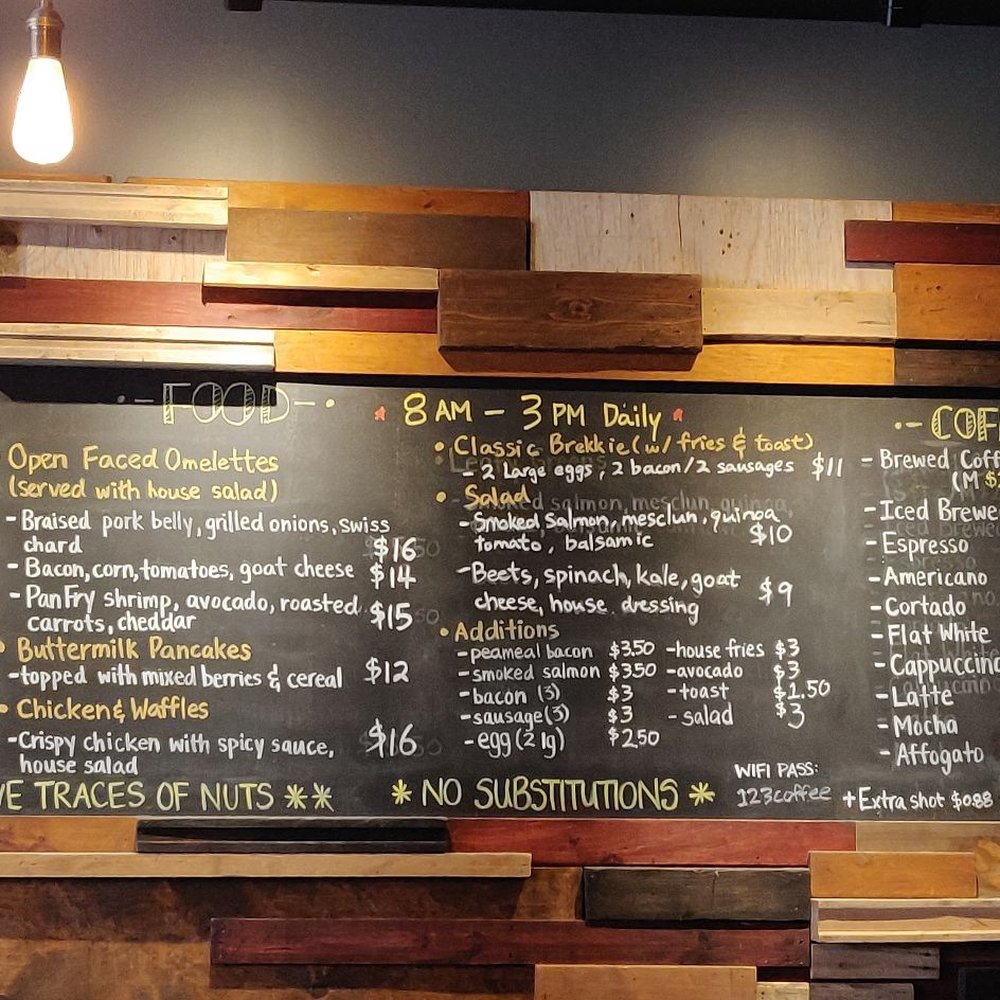 FOOD
Open Faced Omelettes
(served with house salad)
- Braised pork belly, grilled onions, swiss
chard $16
- Bacon, corn, tomatoes, goat cheese $14
- Pan Fry shrimp, avocado, roasted
carrots, cheddar $15
• Buttermilk Pancakes
- topped with mixed berries & cereal $12
• Chicken & Waffles
- Crispy chicken with spicy sauce, $16
house salad
TRACES OF NUTS **
8 AM - 3 PM Daily
• Classic Brekkie (w/ fries & toast)
- 2 Large eggs, 2 bacon/2 sausages $11
• Salad
- Smoked Salmon, mesclun, quinoa
tomato, balsamic $10
- Beets, spinach, kale, goat
cheese, house dressing $9
• Additions
- peameal bacon $3.50 - house fries $3
- smoked salmon $3.50 - avocado $3
- bacon (3) $3 - toast $1.50
- sausage (3) $3 - salad $3
- egg (2 lg) $2.50
* NO SUBSTITUTIONS *
WIFI PASS:
123coffee
- Brewed
(M
- Iced
- Espresso
- Americano
- Cortado
- Flat White
- Cappuccino
- Latte
- Mocha
- Affogato
+ Extra shot $0.88